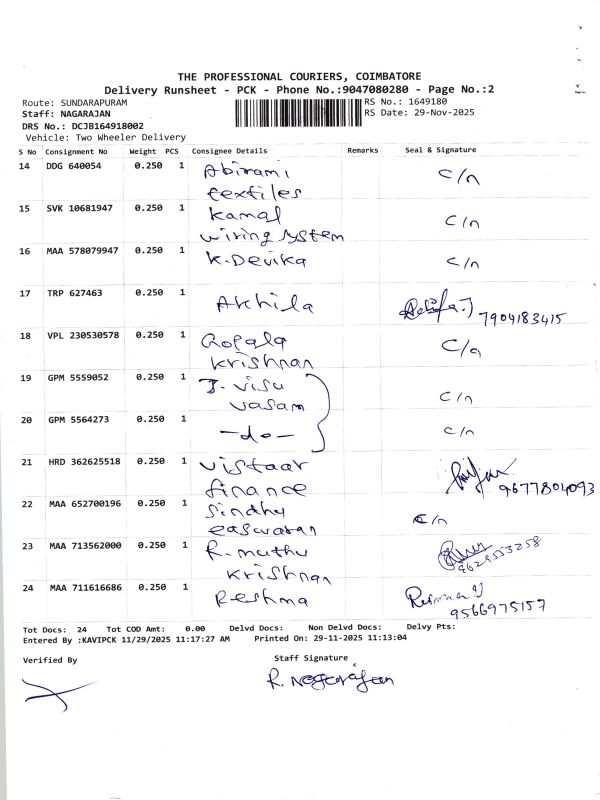 THE PROFESSIONAL COURIERS, COIMBATORE
Delivery Runsheet - PCK - Phone No.:9047080280 - Page No.:2
Route: SUNDARAPURAM RS No.: 1649180
Staff: NAGARAJAN RS Date: 29-Nov-2025
DRS No.: DCJB164918002
Vehicle: Two Wheeler Delivery
S No Consignment No Weight PCS Consignee Details Remarks Seal & Signature
14 DDG 640054 0.250 1 Abirami C/n
textiles
15 SVK 10681947 0.250 1 Kamal C/n
wiring system
16 MAA 578079947 0.250 1 K. Devika C/n
17 TRP 627463 0.250 1 Akhila 7904183415
18 VPL 230530578 0.250 1 Gopala C/n
Krishnan
19 GPM 5559052 0.250 1 J. Visu C/n
vasam
20 GPM 5564273 0.250 1 -do- C/n
21 HRD 362625518 0.250 1 Vistaar
finance 9677804093
22 MAA 652700196 0.250 1 Sindhu C/n
easwaran
23 MAA 713562000 0.250 1 R. muthu 9629553258
Krishnan
24 MAA 711616686 0.250 1 Reshma
9566975157
Tot Docs: 24 Tot COD Amt: 0.00 Delvd Docs: Non Delvd Docs: Delvy Pts:
Entered By :KAVIPCK 11/29/2025 11:17:27 AM Printed On: 29-11-2025 11:13:04
Verified By Staff Signature
R. Nagarajan